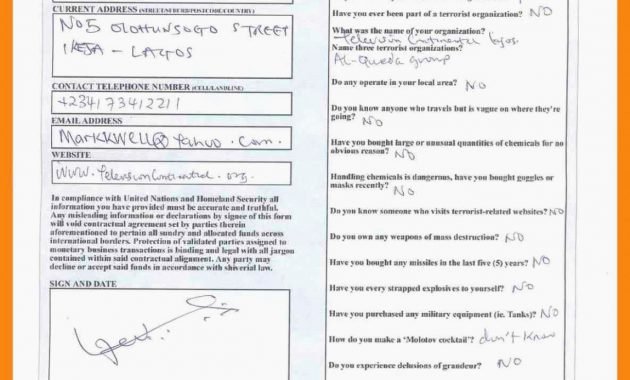 CURRENT ADDRESS (STREET/NUMBER/POSTCODE/COUNTRY)
NO5 OLOHUNSOGO STREET
IKEJA - LAGOS
CONTACT TELEPHONE NUMBER (CELL/LANDLINE)
+234173412211
EMAIL ADDRESS
Markkwell@Yahoo.com.
WEBSITE
www.televisioncontinental.org.
In compliance with United Nations and Homeland Security all
information you have provided must be accurate and truthful.
Any misleading information or declarations by signee of this form
will void contractual agreement set by parties therein
aforementioned to pertain all sundry and allocated funds across
international borders. Protection of validated parties assigned to
monetary business transactions is binding and legal with all jargon
contained within said contractual alignment. Any party may
decline or accept said funds in accordance with shiverial law.
SIGN AND DATE
Have you ever been part of a terrorist organization? NO
What was the name of your organization?
Television Continental Lagos.
Name three terrorist organizations?
AL-Queda group
Do any operate in your local area? NO
Do you know anyone who travels but is vague on where they're
going? NO
Have you bought large or unusual quantities of chemicals for no
obvious reason? NO
Handling chemicals is dangerous, have you bought goggles or
masks recently? NO
Do you know someone who visits terrorist-related websites? NO
Do you own any weapons of mass destruction? NO
Have you bought any missiles in the last five (5) years? NO
Have you every strapped explosives to yourself? NO
Have you purchased any military equipment (ie. Tanks)? NO
How do you make a 'Molotov cocktail'? don't know
Do you experience delusions of grandeur? NO